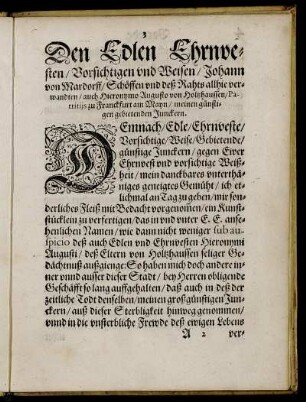 3
Den Edlen Ehrnve-
sten/ Vorsichtigen vnd Weisen/ Johann
von Mardorff/ Schöffen vnd deß Rahts allhie ver-
wandten/ auch Hieronymo Augusto von Holtzhaussen/ Pa-
tritijs zu Franckfurt am Mayn/ meinen günsti-
gen gebietenden Junckern.
DEmnach/ Edle/ Ehrnveste/
Vorsichtige/ Weise/ Gebietende/
günstige Junckern/ gegen Ewer
Ehrnvest vnd vorsichtige Weiß-
heit/ mein danckbares vnterthä-
niges geneigtes Gemüht/ ich et-
lichmal an Tag zu geben/ mir son-
derliches Fleiß mit Bedacht vorgenom̃en/ ein Kunst-
stücklein zu verfertigen/ das in vnd vnter E. E. anse-
henlichen Namen/ wie dann nicht weniger sub au-
spicio deß auch Edlen vnd Ehrnvesten Hieronymi
Augusti/ deß Eltern von Holtzhaussen seliger Ge-
dächtnuß außgienge. So haben mich doch andere in-
ner vnnd ausser dieser Stadt/ bey Herren obligende
Geschäfft so lang auffgehalten/ daß auch in deß der
zeitliche Todt denselben/ meinen großgünstigen Jun-
ckern/ auß dieser Sterbligkeit hinweg genommen/
vnnd in die vnsterbliche Frewde deß ewigen Lebens
A 2 ver-